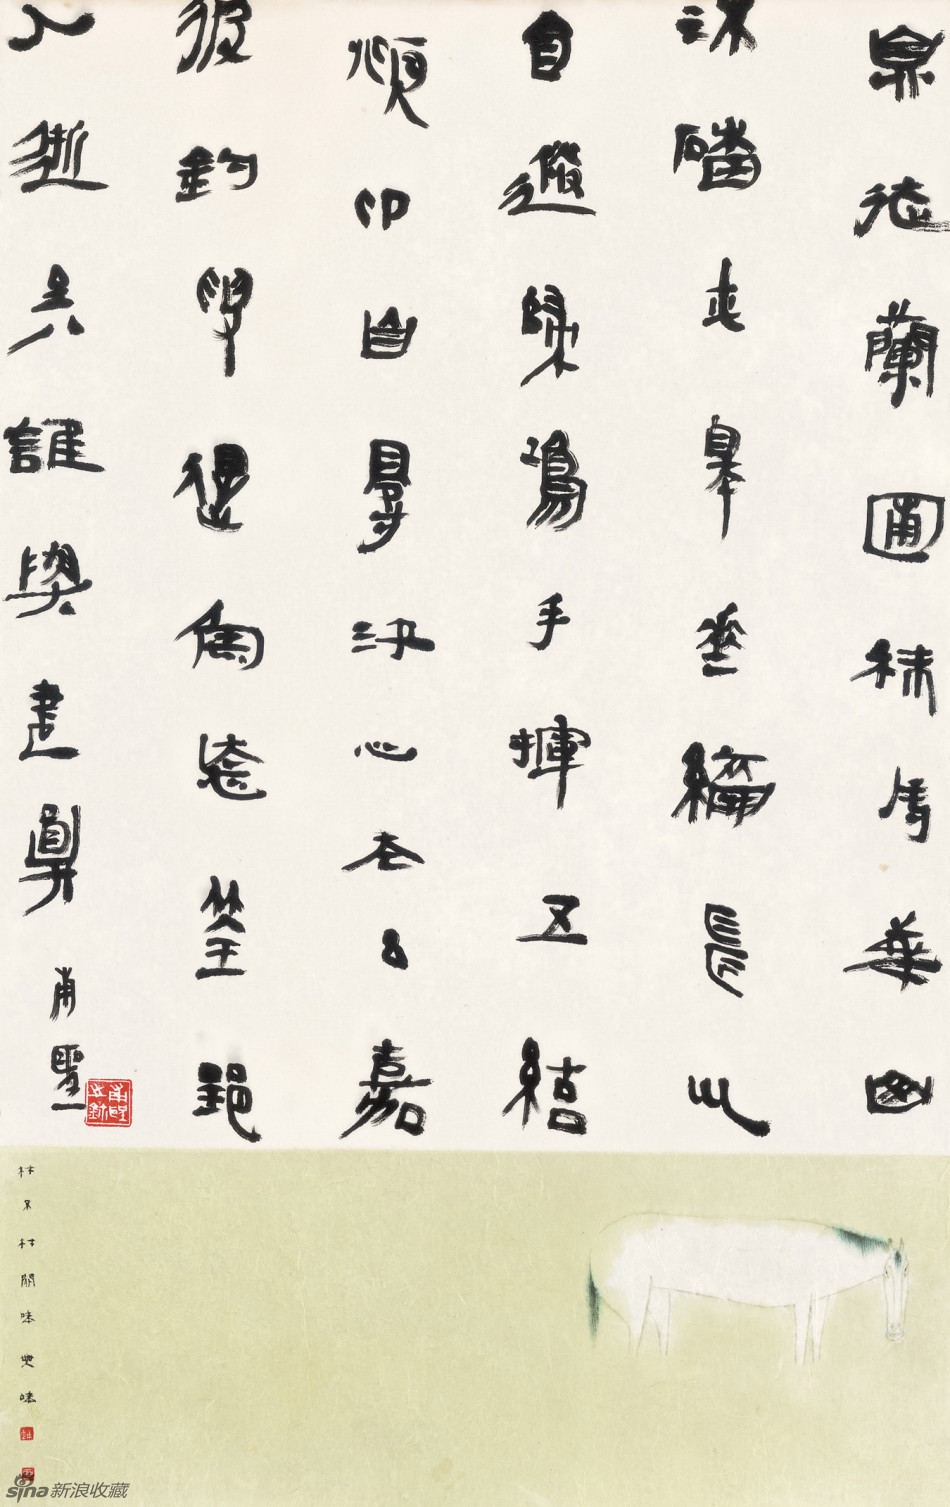 息徒蘭圃秣馬華山
流磻平皋垂綸長川
自送歸鴻手揮五結
頫卬自得汓心太玄嘉
彼釣叟得魚忘筌郢
人逝矣誰與盡言 甫聖
材不材間味無味
sina新浪收藏